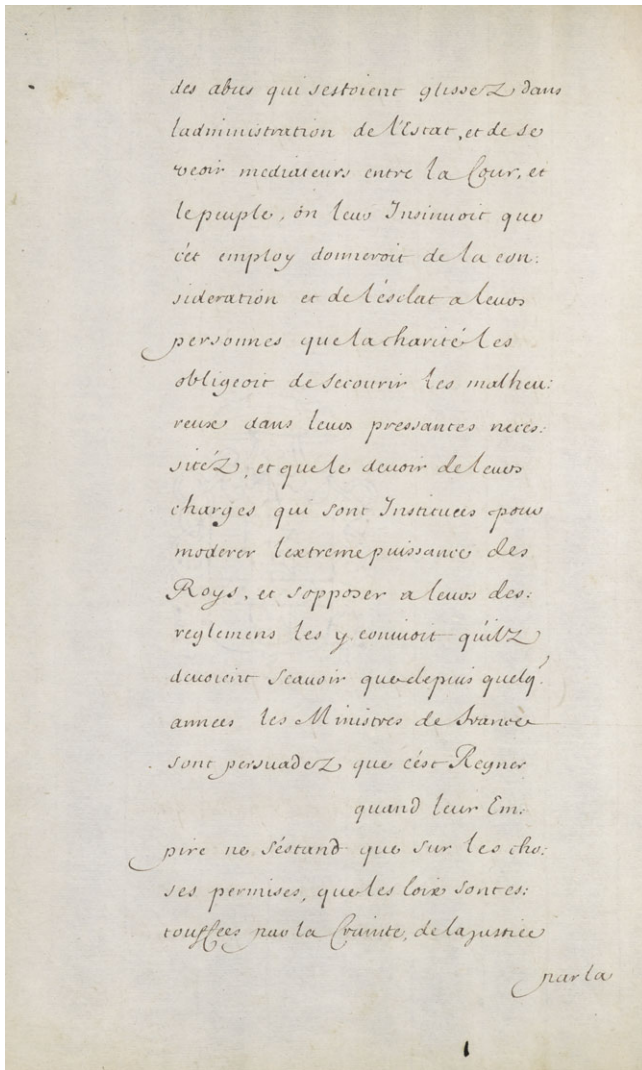 des abus qui sestoient glissez dans
ladministration de l'Estat, et de se
veoir mediateurs entre la Cour, et
le peuple, on leur Insinuoit que
cét employ donneroit de la con:
sideration et de l'ésclat a leurs
personnes que la charité les
obligeoit de secourir les malheu:
reux dans leurs pressantes neces:
sitéz, et que le devoir de leurs
charges qui sont Instituees pour
moderer lextreme puissance des
Roys, et sopposer a leurs des:
reglemens les y convioit qu'ilz
devoient scavoir que depuis quelq.
annees les Ministres de France
sont persuadez que c'ést Regner
quand leur Em:
pire ne s'éstand que sur les cho:
ses permises, que les loix sont es:
touffees par la Crainte, de la justice
par la